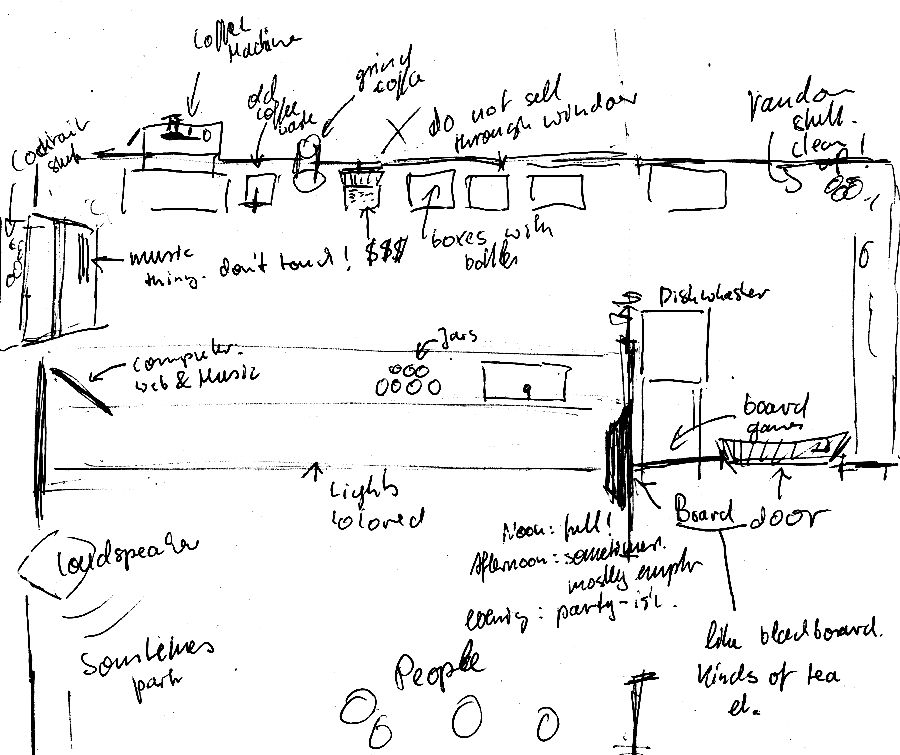 Coffee
Machine
old
coffee
grind
coffee
X do not sell
through window
random
stuff.
clean!
Cocktail
stuff
music
thing. don't touch! $$$
boxes with
bottles
Dishwasher
Jars
computer.
web & Music
board
games
Lights
colored
Board
door
Noon: full!
Afternoon: sometimes.
mostly empty
party-ish.
loudspeaker
Sometimes
People
like blackboard.
Kinds of tea